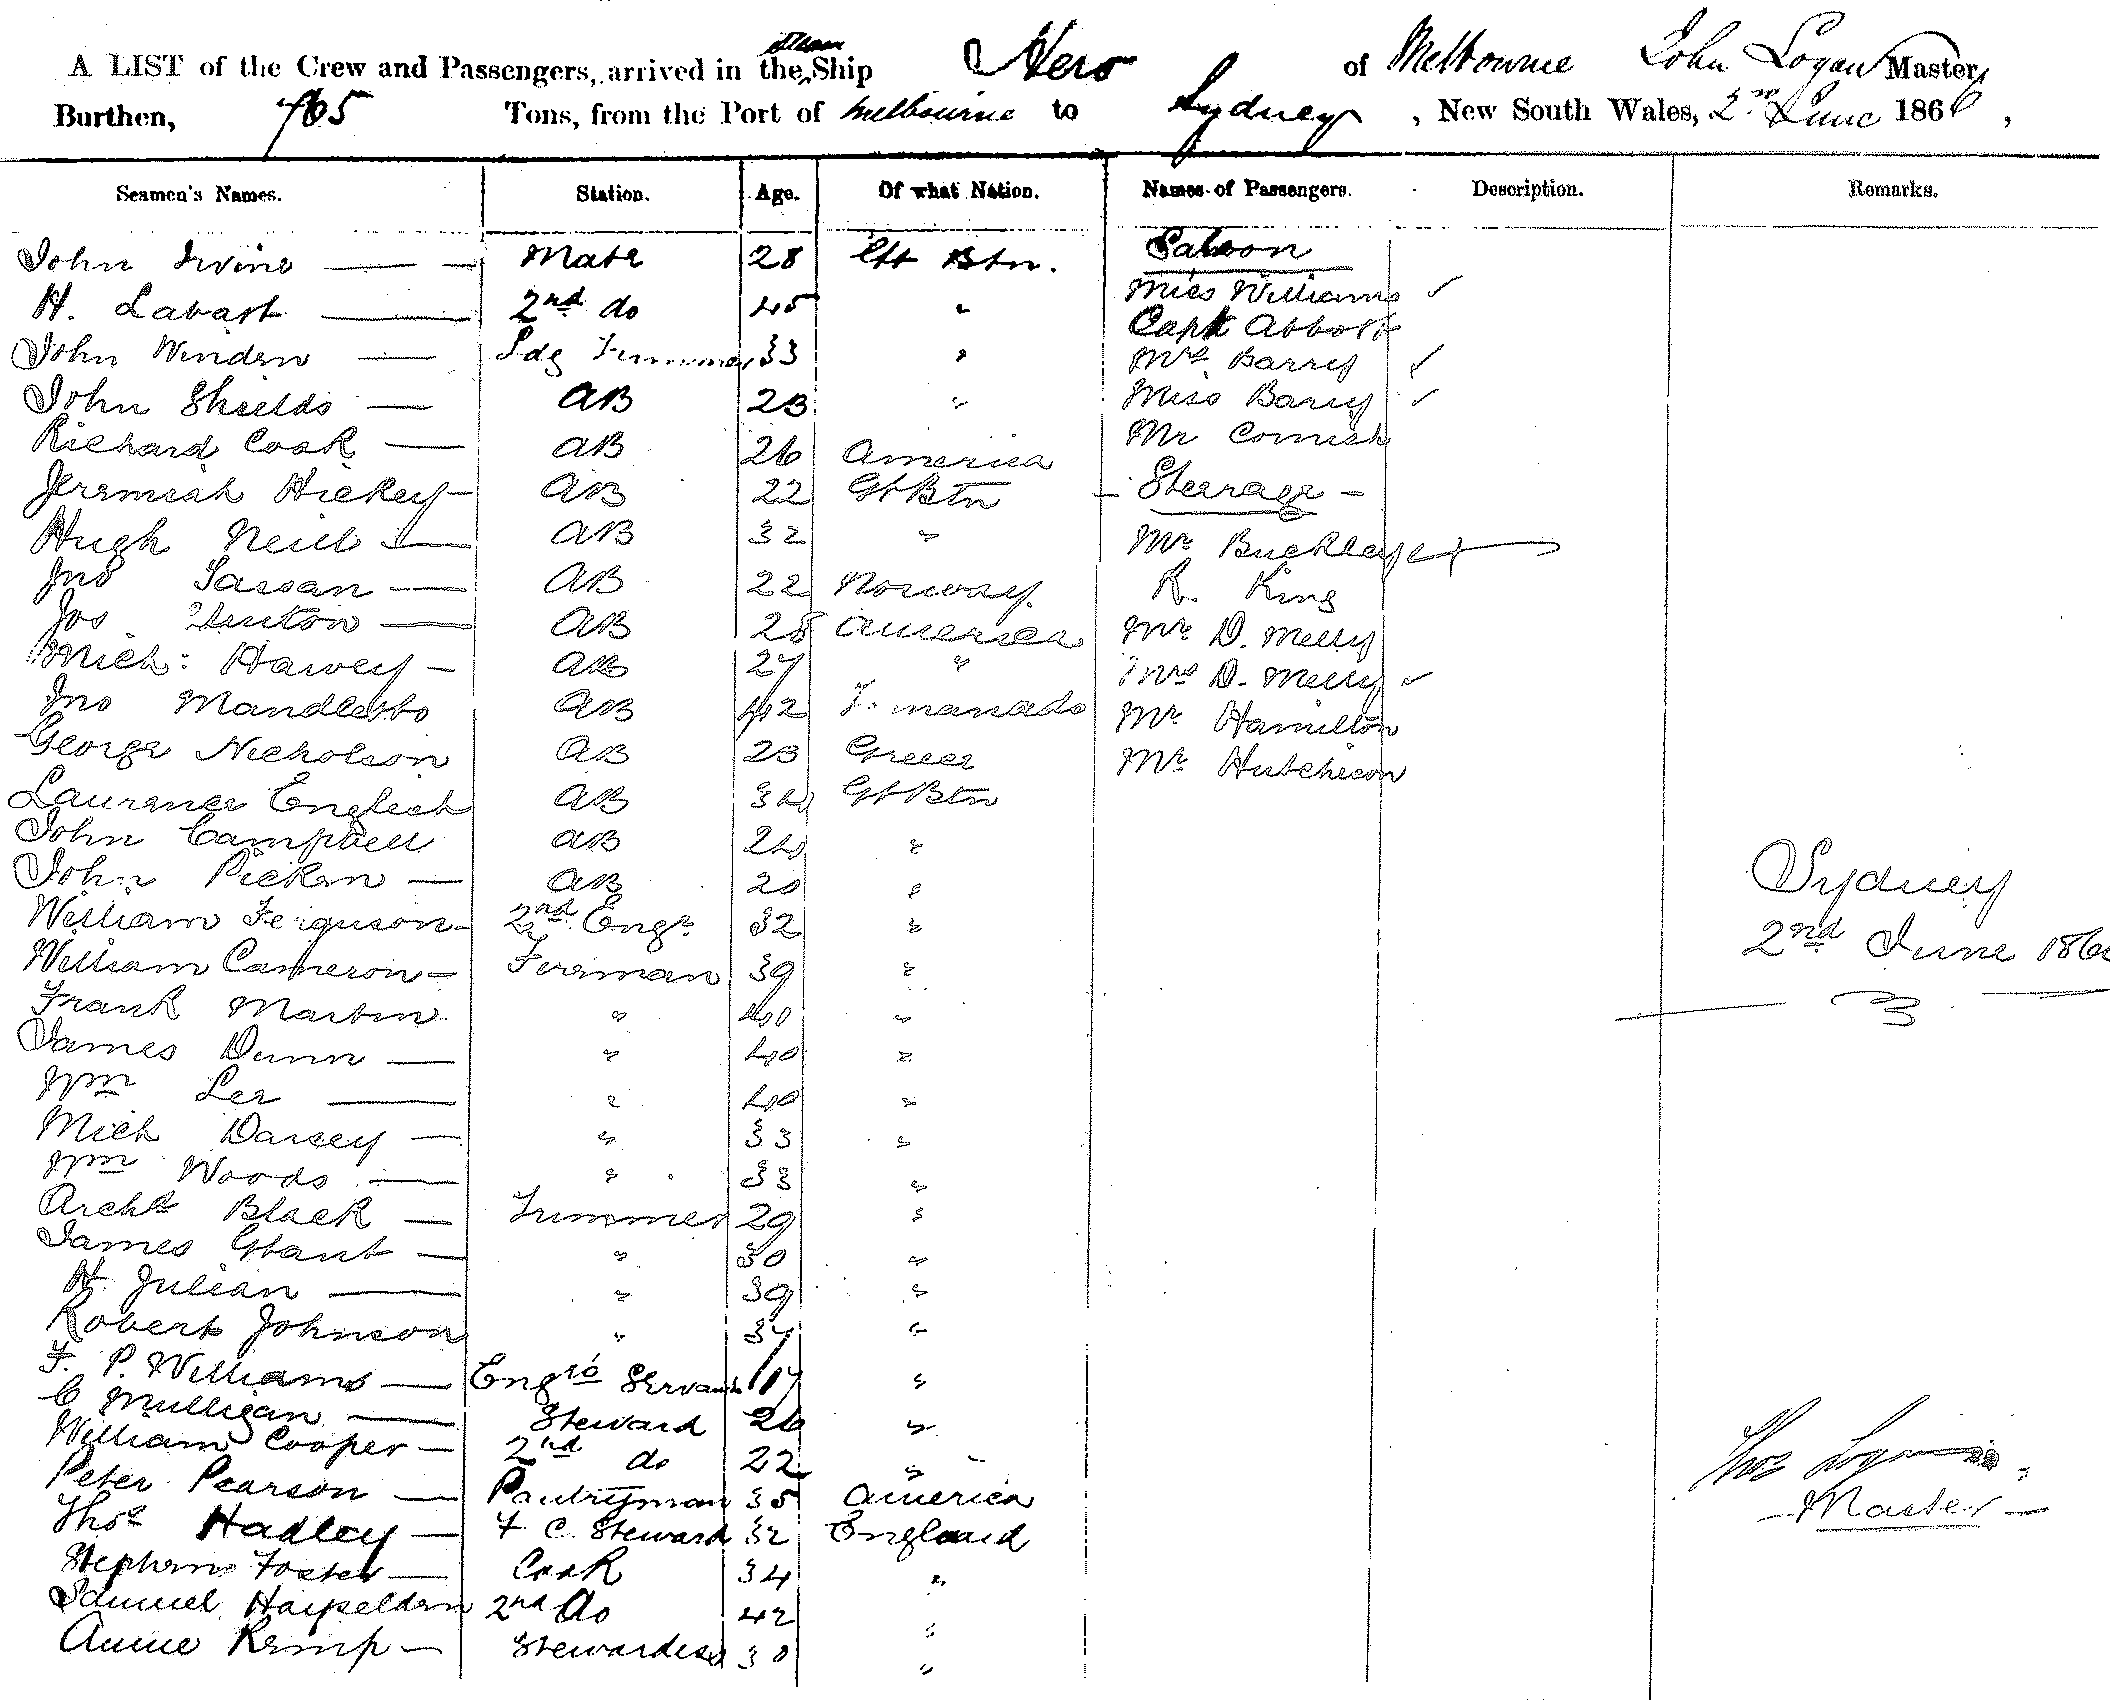 A LIST of the Crew and Passengers, arrived in the Steam Ship Hero of Melbourne John Logan Master,
Burthen, 765 Tons, from the Port of Melbourne to Sydney, New South Wales, 2nd June 1866,
Seamen's Names. Station. Age. Of what Nation. Names of Passengers. Description. Remarks.
John Irvine Mate 28 Gt Btn. Saloon
H. Labast 2nd do 45 " Miss Williams ✓
Capt Abbott
John Winden Ldg 33 " Mrs Barry ✓
John Shields AB 23 " Miss Barry ✓
Richard Cook AB 26 America Mr Cornish
Jeremiah Hickey AB 22 Gt Btn - Steerage -
Hugh Neill AB 32 " Mr Buckley
Jno Sassan AB 22 Norway. R. King
Jos Hinton AB 28 America Mr D. Melly
Mich: Harvey AB 27 " Mrs D. Melly ✓
Jno AB 42 Mr Hamilton
George Nicholson AB 23 Greece Mr Hutchison
Laurance English AB 34 Gt Btn
John Campbell AB 24 "
John Picken AB 20 " Sydney
William Ferguson 2nd Engr 32 " 2nd June 186
William Cameron Fireman 39 "
Frank Martin " 40 "
James Dunn " 40 "
Wm Lee " 40 "
Mich Darcey " 33 "
Wm Woods " 33 "
Archd Black Trimmer 29 "
James Grant " 30 "
H Julian " 39 "
Robert Johnson " 37 "
F. P. Williams Engrs Servant 17 "
C Mulligan Steward 26 "
William Cooper 2nd do 22 "
Peter Pearson Pantryman 35 America Logan
Thos Hadley F C Steward 32 England - Master -
Stephen Foster Cook 34 "
Samuel Haypelden 2nd do 42 "
Annie Kemp Stewardess 30 "